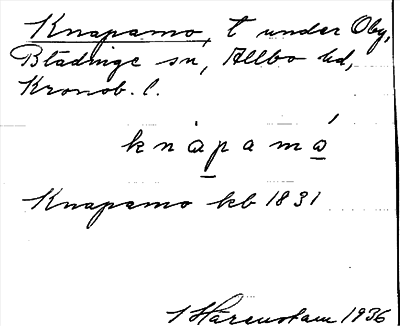 Knapamo, t under Oby,
Blädinge sn, Allbo hd,
Kronob. l.
knàpamá
Knapamo kb 1831
Härenstam 1936